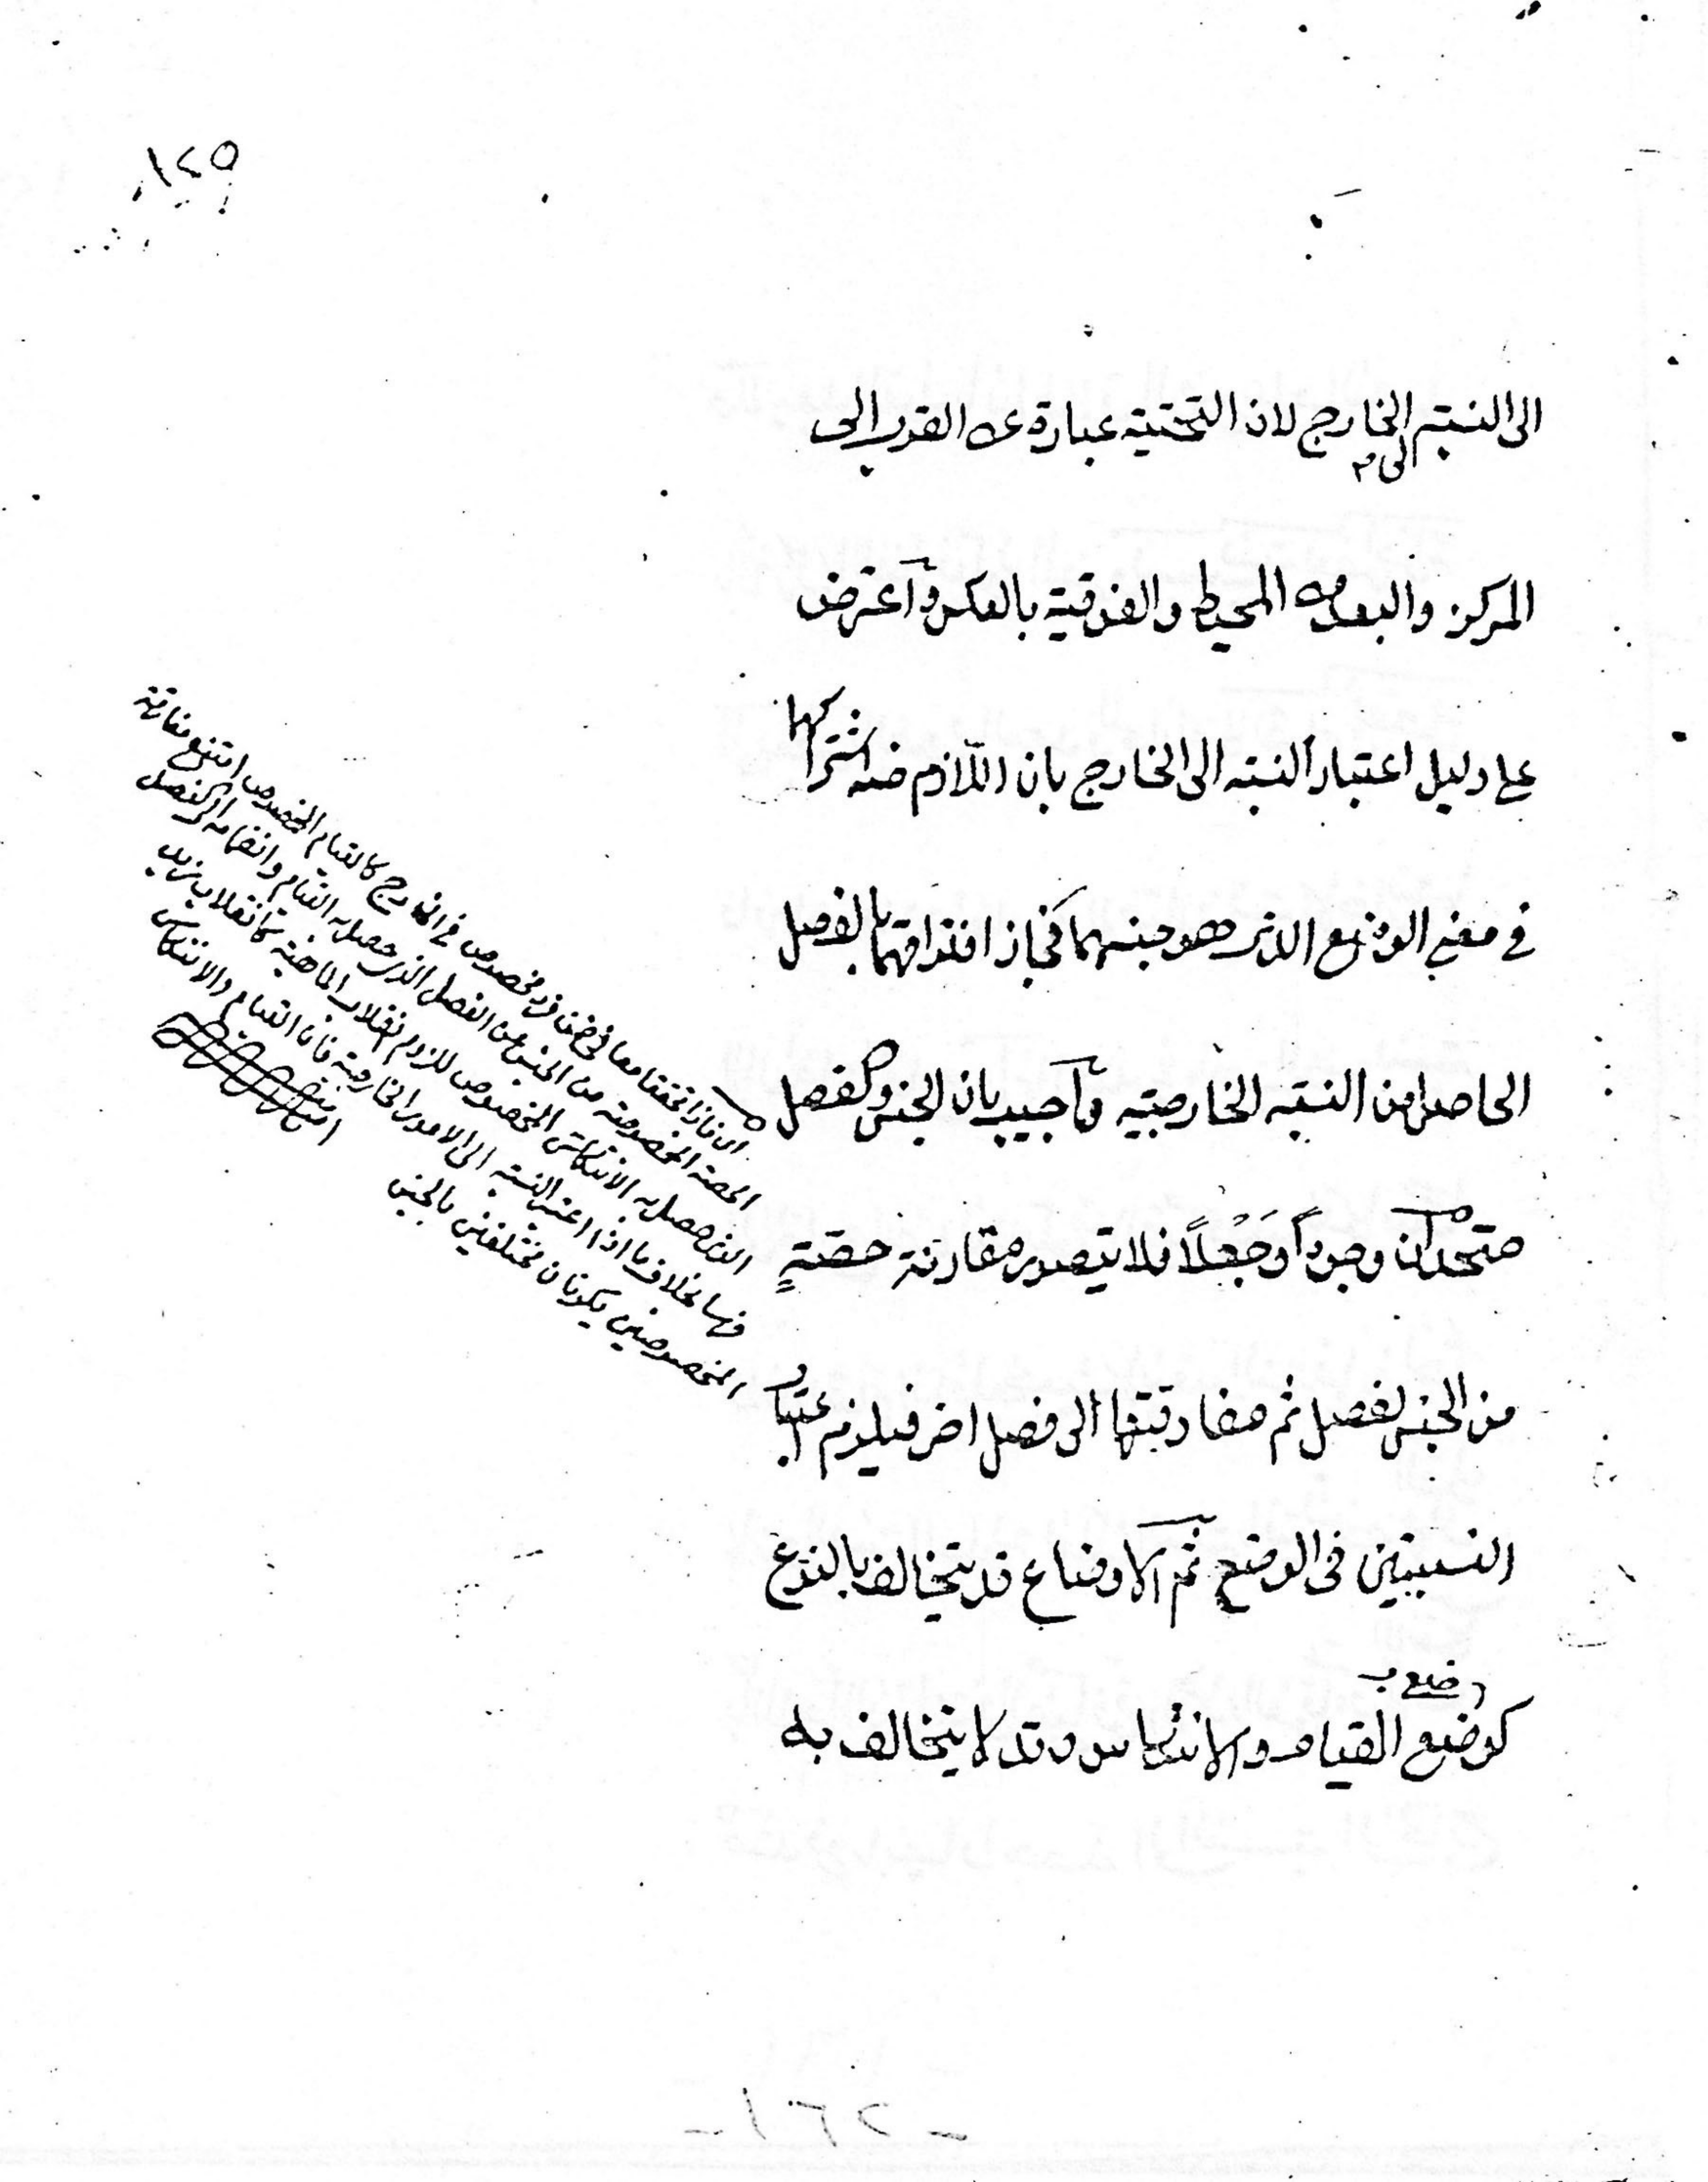 ١٤٥
الى النسبة الخارج لان التحتية عبارة عن القرب الى
الى م
المركز والبعد عن المحيط والفوقية بالعكس وآعترض
على دليل اعتبار النسبة الى الخارج بان اللازم منه اشتراكهما
في معنى الوضع الذى هو جنسهما فجاز افتراقهما بالفصل
الحاصل من النسبة الخارجيّة وآجيب بان الجنس والفصل
متحدان وجوداً وَجَعْلاً فلا يتصور مقارنة حصّةٍ
من الجنس لفصل ثم مفارقتها الى فصل اخر فيلزم اعتبار
النسبتين فى الوضع ثم الاوضاع قد يتخالف بالنوع
وضع ب
كوضع القيام والانتكاس وقد لا يتخالف به
اى فاذا تحققا معا في ضمن فرد مخصوص في الخارج كالقيام المخصوص امتنع مفارقة
الحصة المخصوصة من الجنس عن الفصل الذى حصل به القيام وانضمامه الى الفصل
الذى حصل به الانتكاس المخصوص للزوم انقلاب الماهية كانقلاب زيد
بخلاف ما اذا اعتبر النسبة الى الامور الخارجية فان القيام والانتكاس
المخصوصين يكونان مختلفين بالجنس